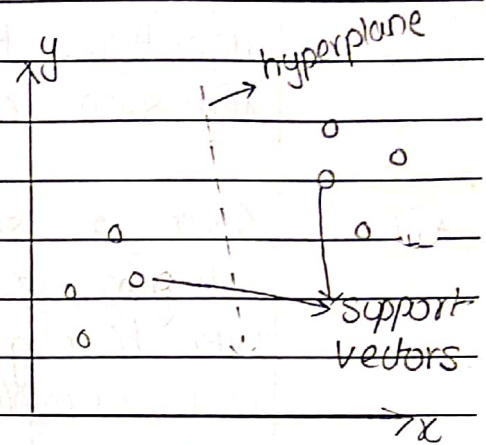 y
hyperplane
support
vectors
x